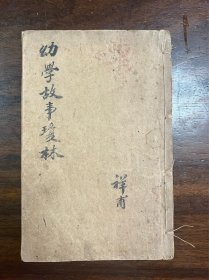 幼學故事瓊林
祥甫